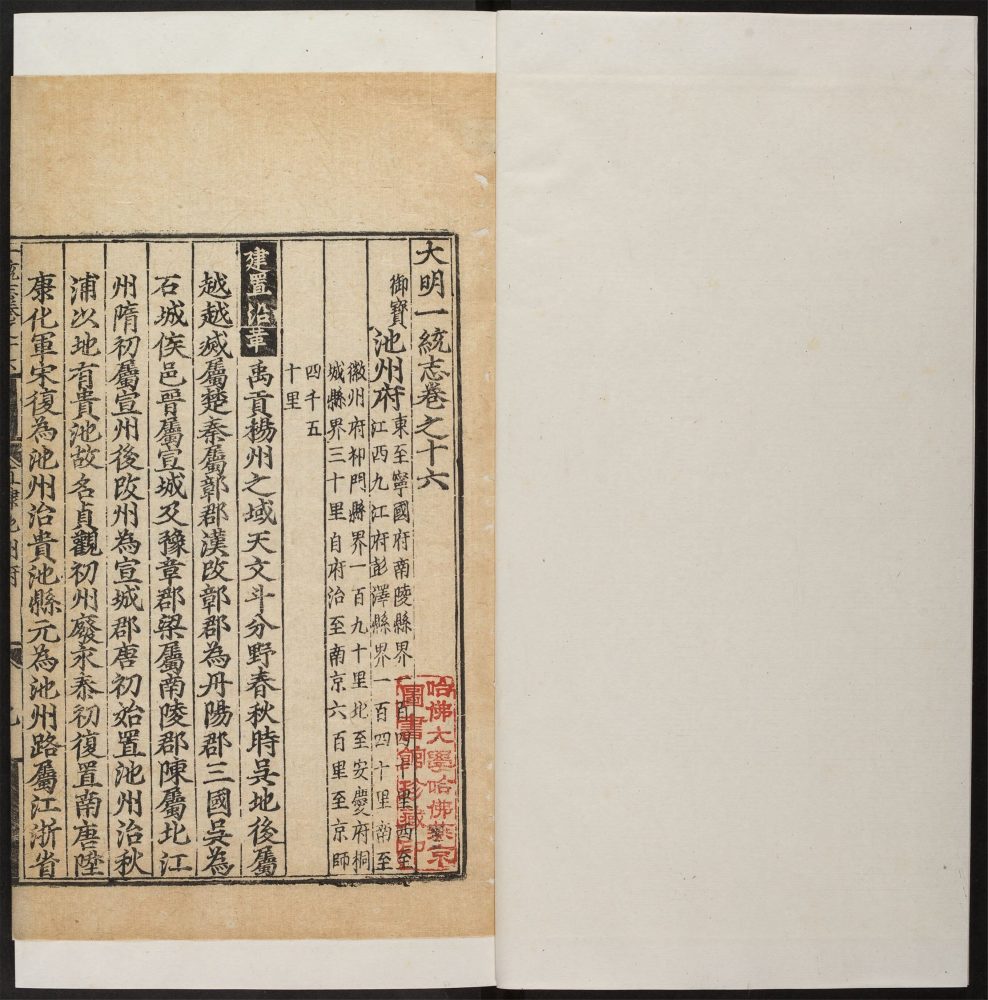 大明一統志卷之十六
御寳
池州府
東至寧國府南陵縣界一百四十里西至
江西九江府彭澤縣界一百四十里南至
徽州府祁門縣界一百九十里北至安慶府桐
城縣界三十里自府治至南京六百里至京師
四千五
十里
建置沿革
禹貢楊州之域天文斗分野春秋時吳地後屬
越越滅屬楚秦屬鄣郡漢改鄣郡為丹陽郡三國吳為
石城侯邑晉屬宣城及豫章郡梁屬南陵郡陳屬北江
州隋初屬宣州後改州為宣城郡唐初始置池州治秋
浦以地有貴池故名貞觀初州廢永泰初復置南唐陞
康化軍宋復為池州治貴池縣元為池州路屬江浙省
哈佛大學哈佛燕京
圖書館珍藏印